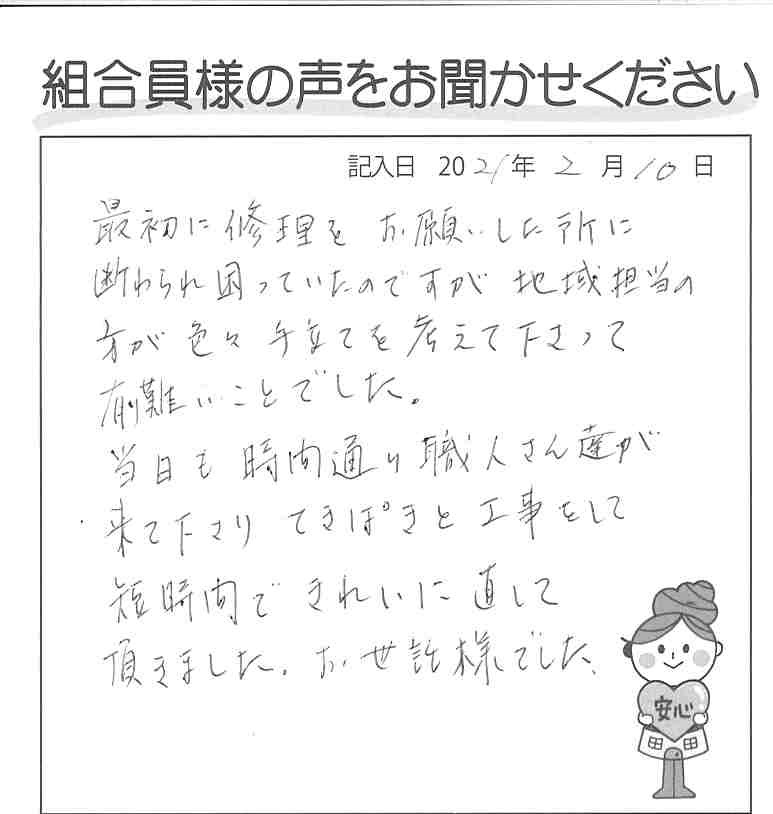 組合員様の声をお聞かせください
記入日 2021年2月10日
最初に修理をお願いした所に
断わられ困っていたのですが 地域担当の
方が色々手立てを考えて下さって
有難いことでした。
当日も時間通り職人さん達が
来て下さり てきぱきと工事をして
短時間できれいに直して
頂きました。お世話様でした。
安心